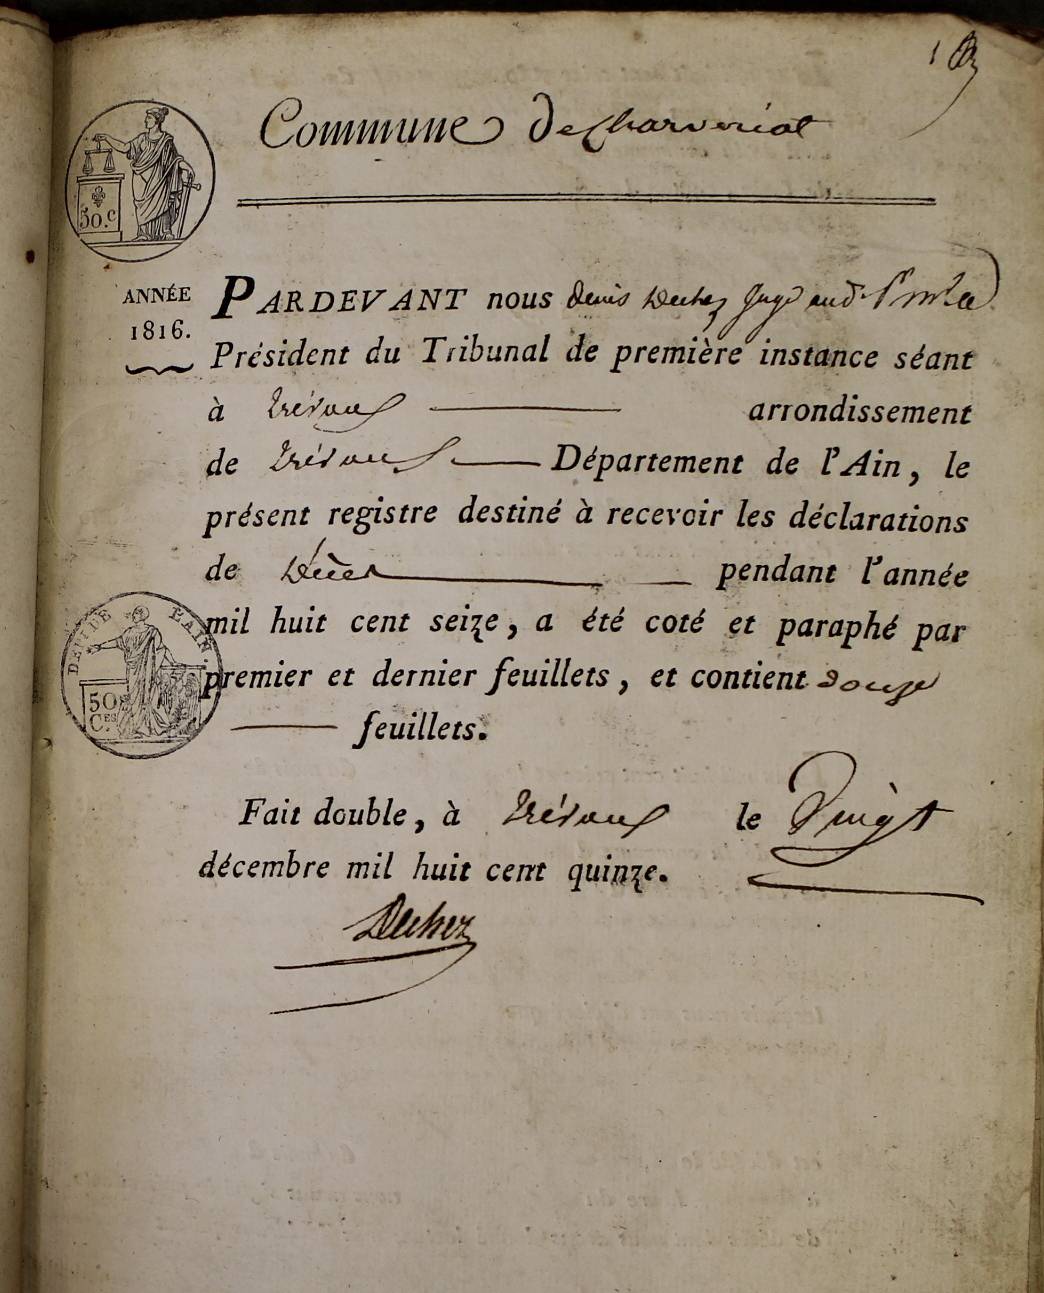 1
Commune de Charveriat
50.c
ANNÉE
1816.
PARDEVANT nous Denis Dechez Juge
Président du Tribunal de première instance séant
à trévoux arrondissement
de trévoux Département de l'Ain, le
présent registre destiné à recevoir les déclarations
de Décès pendant l'année
DEPT DE L'AIN
mil huit cent seize, a été coté et paraphé par
premier et dernier feuillets, et contient douze
50
C.ES
feuillets.
Fait double, à trévoux le Vingt
décembre mil huit cent quinze.
Dechez